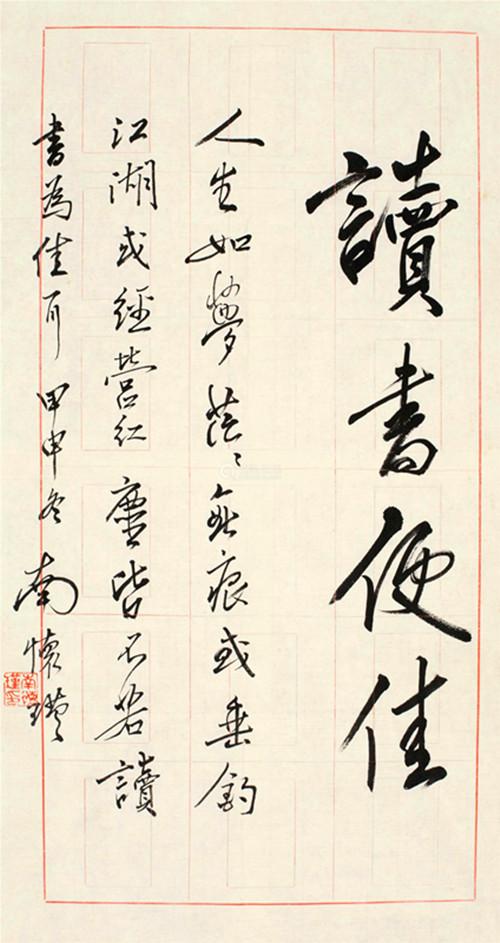 讀書便佳
人生如夢茫々無痕或垂釣
江湖或經營紅塵皆不若讀
書為佳耳 甲申冬 南懷瑾
南懷瑾印